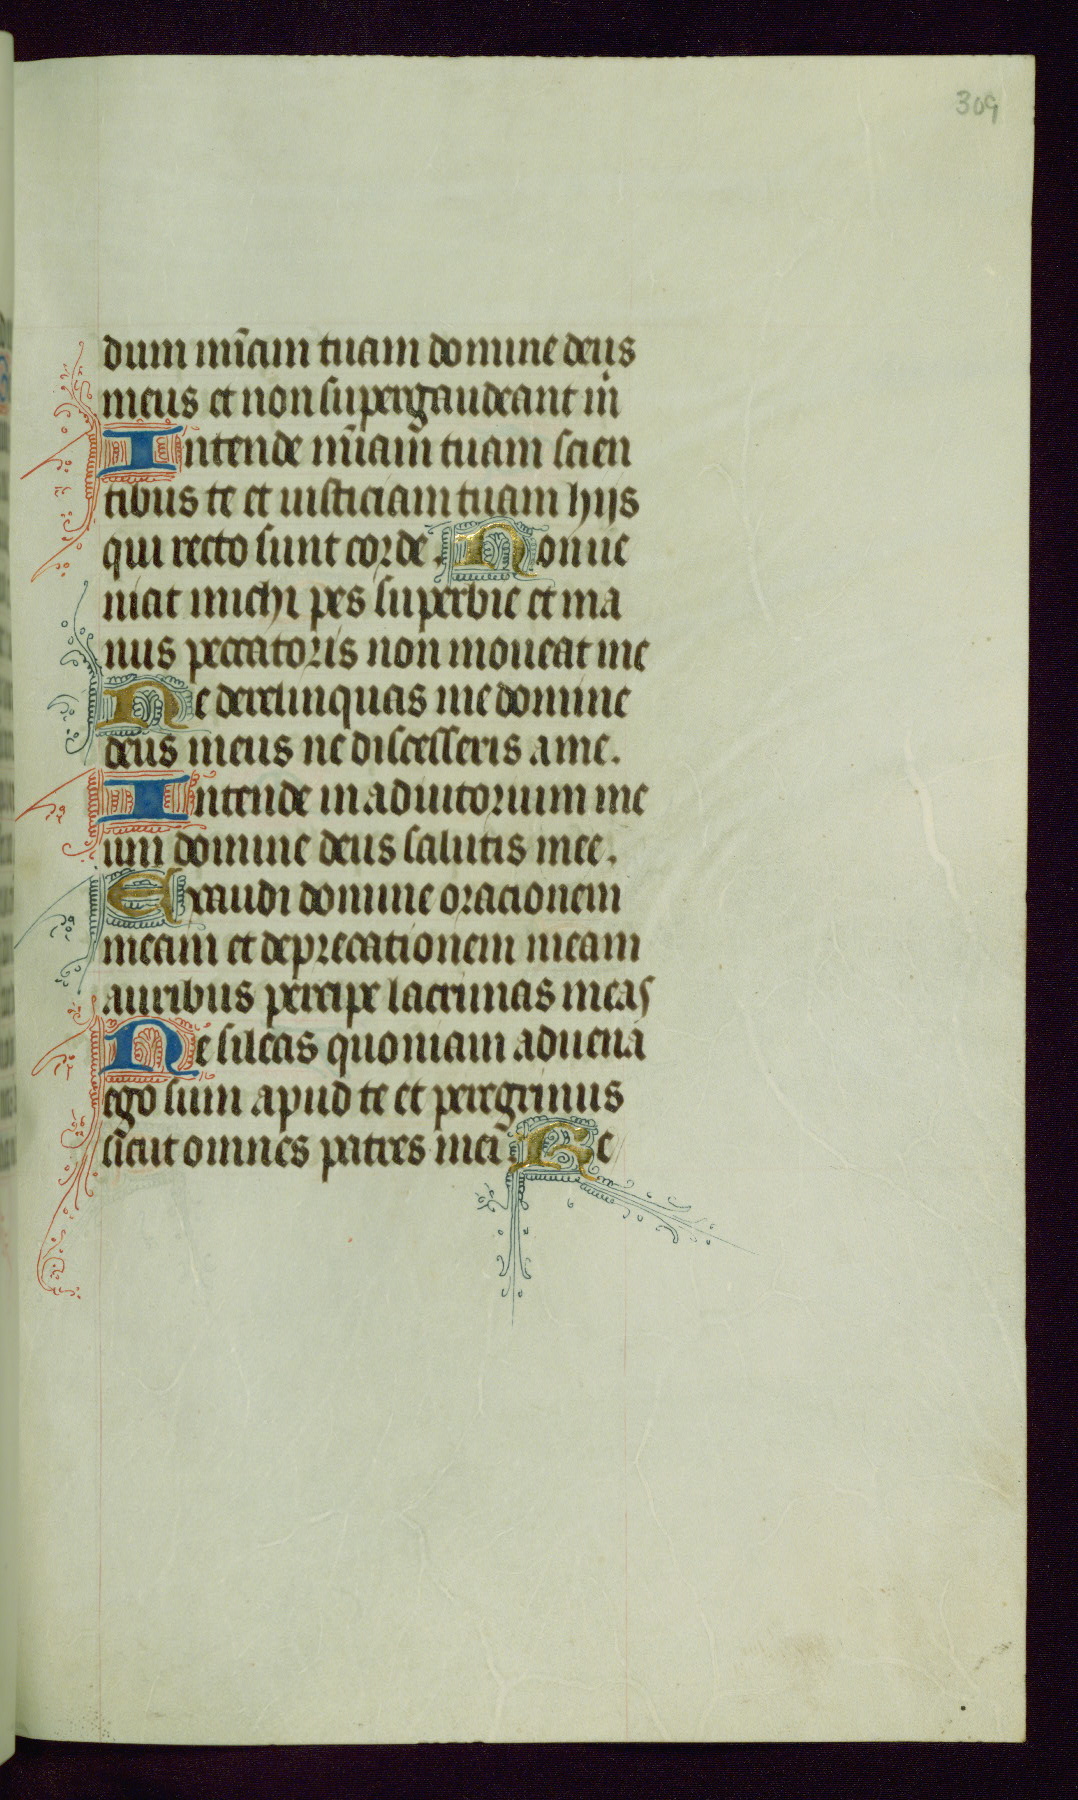 309
dum mīam tuam domine deus
meus et non supergaudeant m̄
Intende mīam tuam scien
tibus te et iusticiam tuam hijs
qui recto sunt corde. Non ue
niat michi pes superbie et ma
nus peccatoris non moueat me
Ne derelinquas me domine
deus meus ne discesseris a me.
Intende in adiutorium me
um domine deus salutis mee.
Exaudi domine oracionem
meam et deprecationem meam
auribus percipe lacrimas meas
Ne sileas quoniam aduena
ego sum apud te et peregrinus
sicut omnes patres mei Re